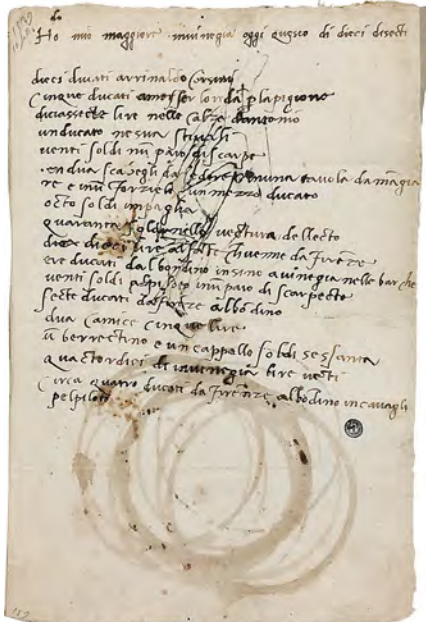 Ho mio maggiore invinegia oggi questo di dieci disecte
dieci ducati arrinaldo corsini
cinque ducati amesser loredā p la pigione
diciassecte lire nelle calze dantonio
un ducato nesua stivali
venti soldi inū paio di scarpe
en dua scabegli da sedere e inuna tavola da mangia
re e inū forziere un mezzo ducato
octo soldi in paglia
quaranta soldi nello vectura del lecto
dieci lire al fante chevenne da firenze
tre ducati dal bondino insino avinegia nelle barche
venti soldi inū paio di scarpecte
secte ducati da firenze albodino
dua camice cinque lire
ū berrectino e un cappello soldi sessanta
quactordici di invinegia lire venti
circa quatro ducati da firenze albodino in cavagli